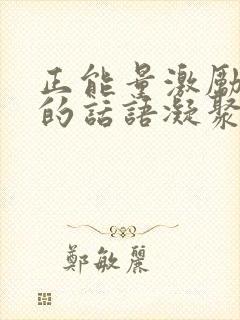 正能量激勵
的話語凝聚
鄭敏麗